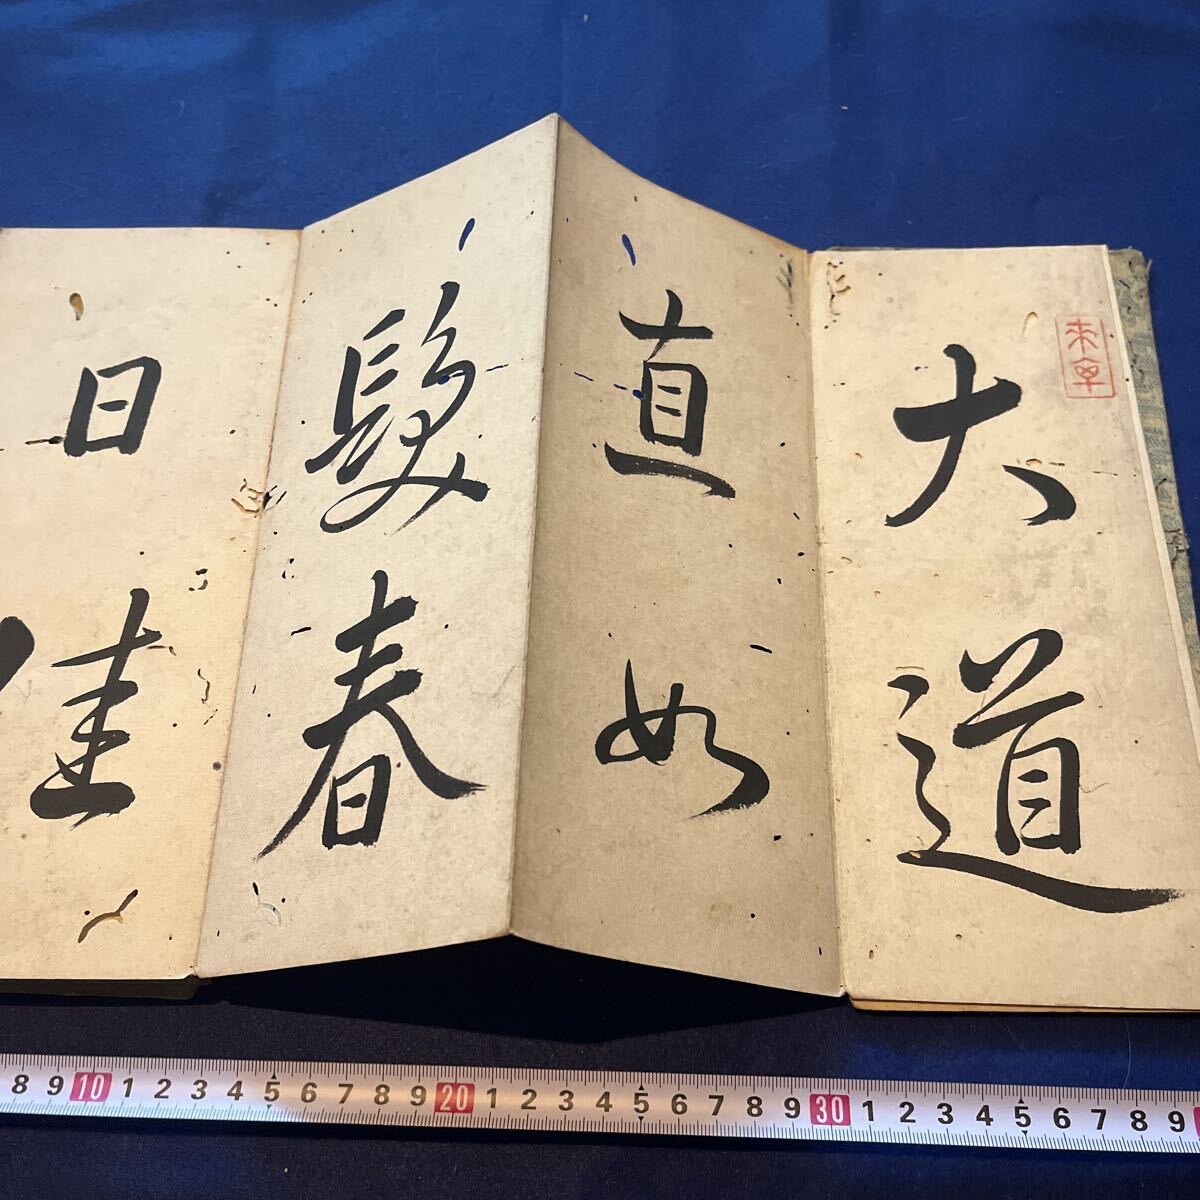 大道
直如
髮春
日佳
8 9 10 1 2 3 4 5 6 7 8 9 20 1 2 3 4 5 6 7 8 9 30 1 2 3 4 5 6 7 8 9